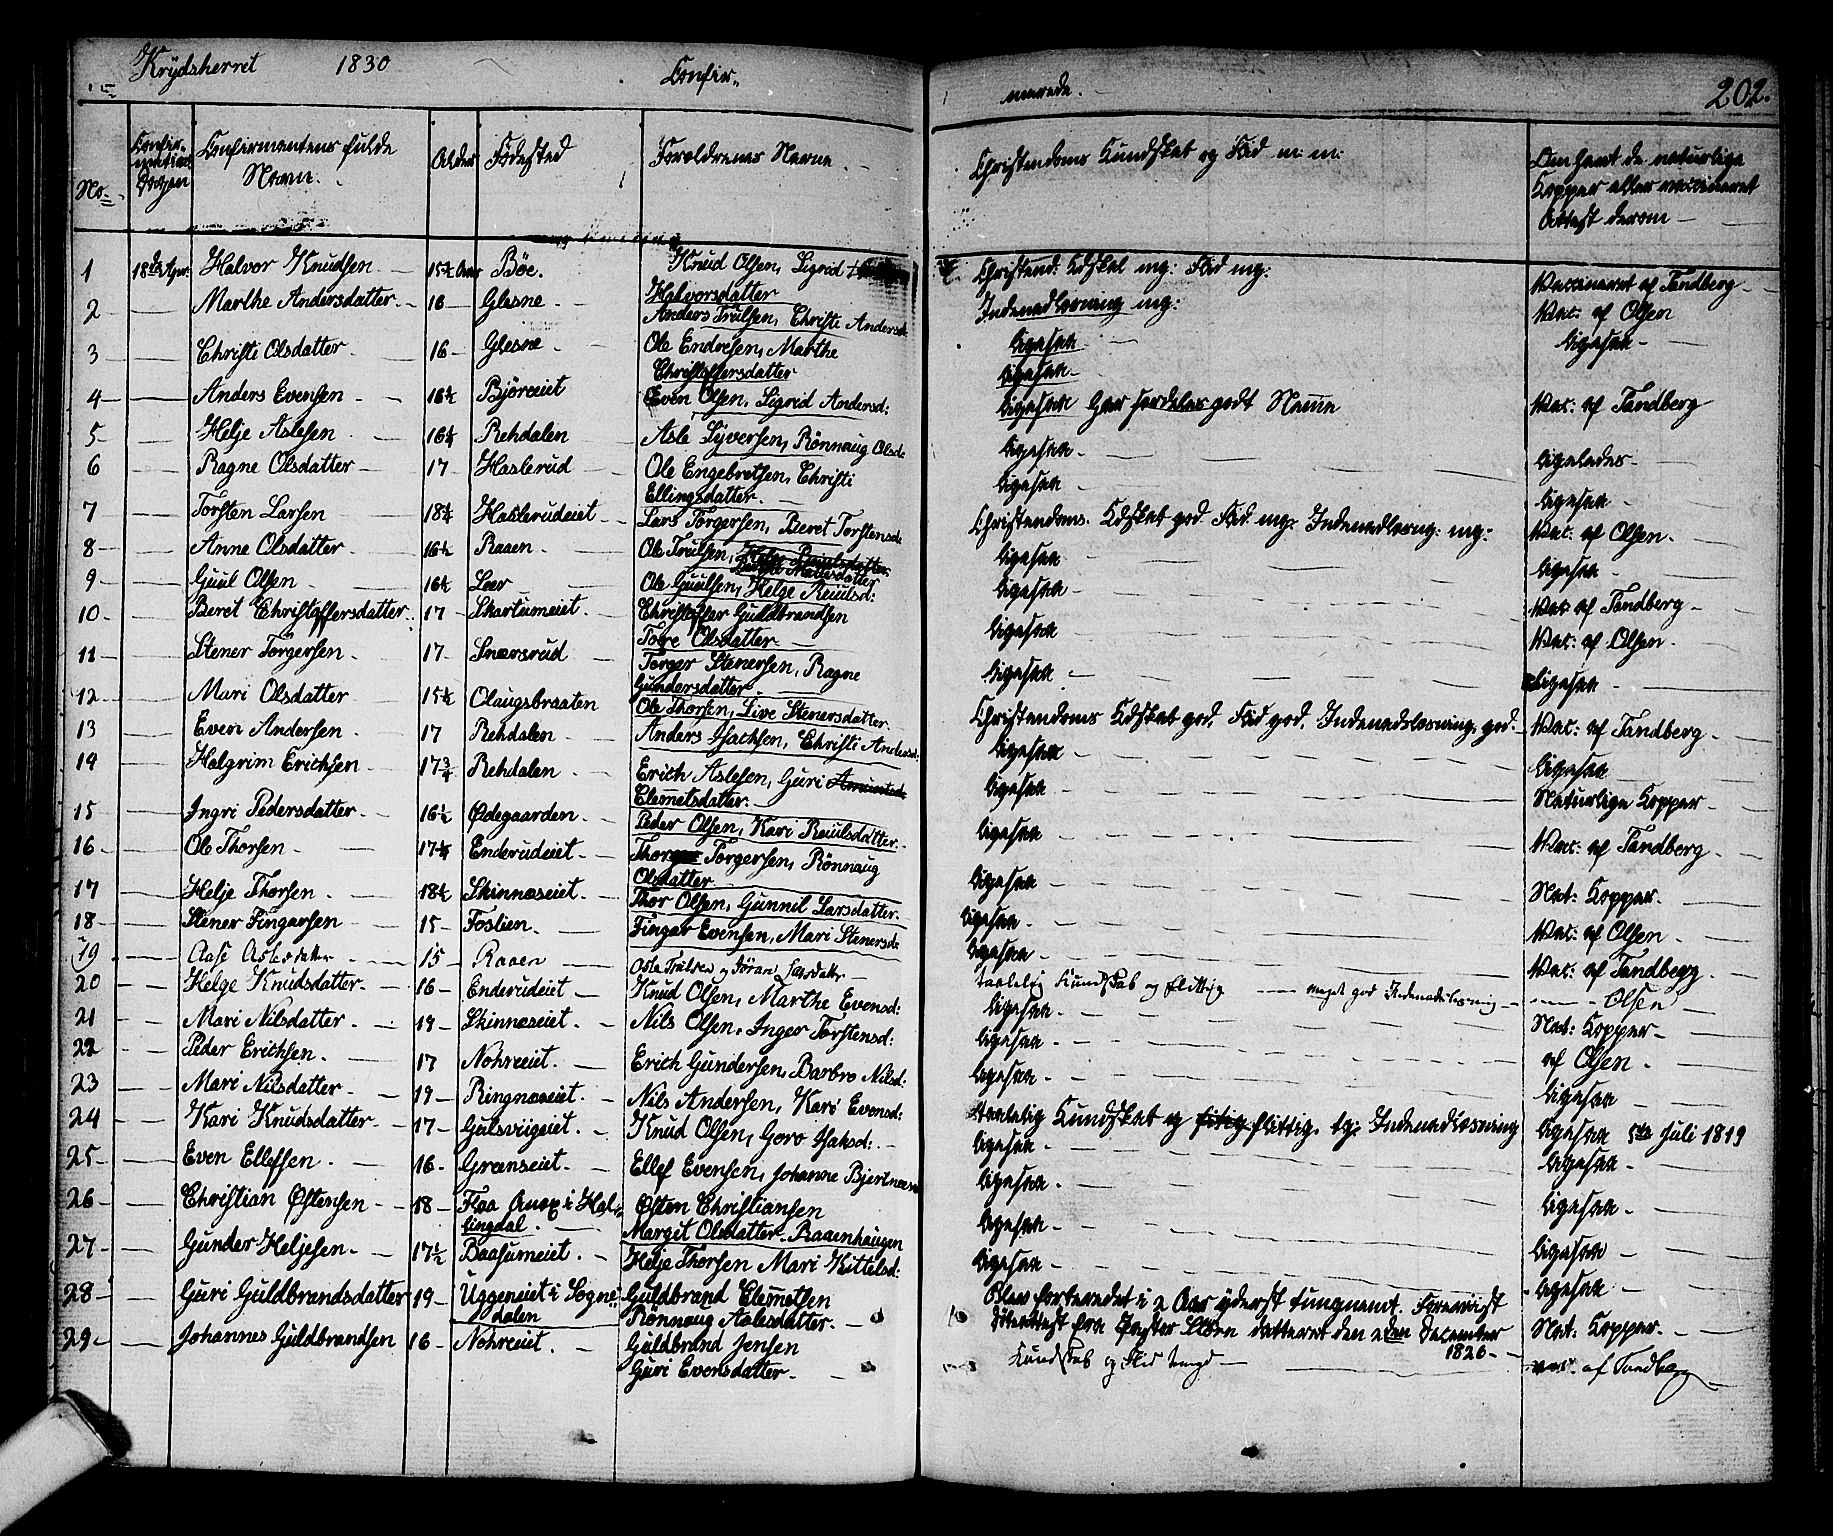 Krydsherret 1830 Confir-
merede. 202.
No
Confir-
mations
Dagen
Confirmentens fulde
Navn.
Alder
Födested
Foreldrenes Navne
Christendoms Kundskab og Flid m: m:
Om havt de naturlige
Kopper eller vaccineret
Attest derom
1 18de Apr. Halvor Knudsen 15½ Aar Böe. Knud Olsen, Sigrid
Halvorsdatter Christend: Kdskab mg: Flid mg:
Indenadlæsning mg: Vaccineret af Tandberg
2 Marthe Andersdatter 16 Glesne Anders Trulsen, Christi Andersd: ligesaa Vac: af Olsen
3 Christi Olsdatter 16 Glesne Ole Endresen, Marthe
Christoffersdatter ligesaa ligesaa
4 Anders Evensen 16½ Björeeiet Even Olsen, Sigrid Andersd: ligesaa har særdeles godt Nemme Vac: af Tandberg
5 Helje Aslesen 16½ Rehdalen Asle Syversen, Rönnaug Olsd: ligesaa ligeledes
6 Ragne Olsdatter 17 Haslerud Ole Engebretsen, Christi
Ellingsdatter ligesaa ligesaa
7 Torsten Larsen 18½ Haslerudeiet Lars Torgersen, Beret Torstensd: Christendoms Kdskab god Flid mg: Indenadlæsng: mg: Vac: af Olsen
8 Anne Olsdatter 16½ Raaen Ole Trulsen, Helge Reiulsdatter ligesaa ligesaa
9 Guul Olsen 16½ Leer Ole Guulsen, Helge Reiulsd: ligesaa Vac af Tandberg
10 Beret Christoffersdatter 17 Skartumeiet Christoffer Guldbrandsen
Tore Olsdatter ligesaa Vac: af Olsen
11 Stener Torgersen 17 Snarsrud Torger Stenersen, Ragne
Gundersdatter ligesaa ligesaa
12 Mari Olsdatter 15½ Olaugsbraaten Ole Thorsen, Live Stenersdatter Christendoms Kdskab god, Flid god, Indenadslæsning god Vac: af Tandberg
13 Even Andersen 17 Rehdalen Anders Jachsen, Christi Andersd: ligesaa ligesaa
14 Halgrim Erichsen 17¾ Rehdalen Erich Aslesen, Guri
Clemetsdatter ligesaa Naturlige Kopper
15 Ingri Pedersdatter 16½ Ødegaarden Peder Olsen, Kari Reiulsdatter ligesaa Vac: af Tandberg
16 Ole Thorsen 17½ Enderudeiet Thor Torgersen, Rönnaug
Olsdatter ligesaa Nat: Kopper
17 Helje Thorsen 18½ Skinnæseiet Thor Olsen, Gunnil Larsdatter ligesaa Vac: af Olsen
18 Stener Fingarsen 15 Foslien Fingar Evensen, Mari Stenersd: ligesaa Vac: af Tandberg
19 Aase Aslesdatter 15 Raaen Asle Trulsen og Jöran Larsdatter taalelig Kundskab og flittig meget god Indenadslæsning Olsen
20 Helge Knudsdatter 16 Enderudeiet Knud Olsen, Marthe Evensd: ligesaa Nat: Kopper
21 Mari Nilsdatter 19 Skinnæseiet Nils Olsen, Inger Torstensd: ligesaa af Olsen
22 Peder Erichsen 17 Nohreeiet Erich Gundersen, Barbro Nilsd: ligesaa ligesaa
23 Mari Nilsdatter 19 Ringnæseiet Nils Andersen, Kari Evensd: taalelig Kundskab og flittig. tg: Indenadlæsning ligesaa 5te Juli 1819
24 Kari Knudsdatter 17 Gulsvigeiet Knud Olsen, Goro Jaksd: ligesaa ligesaa
25 Even Ellefsen 16 Grænseiet Ellef Evensen, Johanne Bjertnæs ligesaa ligesaa
26 Christian Østensen 18 Flaa Anex i Hal-
lingdal Østen Christiansen
Margit Olsdatter Raaenhaugen ligesaa ligesaa
27 Gunder Heljesen 17½ Baasumeiet Helje Thorsen Mari Kittelsd: ligesaa ligesaa
28 Guri Guldbrandsdatter 19 Uggeneiet i Sogne-
dalen Guldbrand Clemetsen
Rönnaug Aslesdatter Blev forkeredet i 2 Aar yderst tungnemt. Foreviist
Attest fra Præster Steen datteret den 2den December
1826 Nat: Kopper
29 Johannes Guldbrandsen 16 Nohreeiet Guldbrand Jensen
Guri Evensdatter Kundskab og Flid temgd vac: af Tandberg